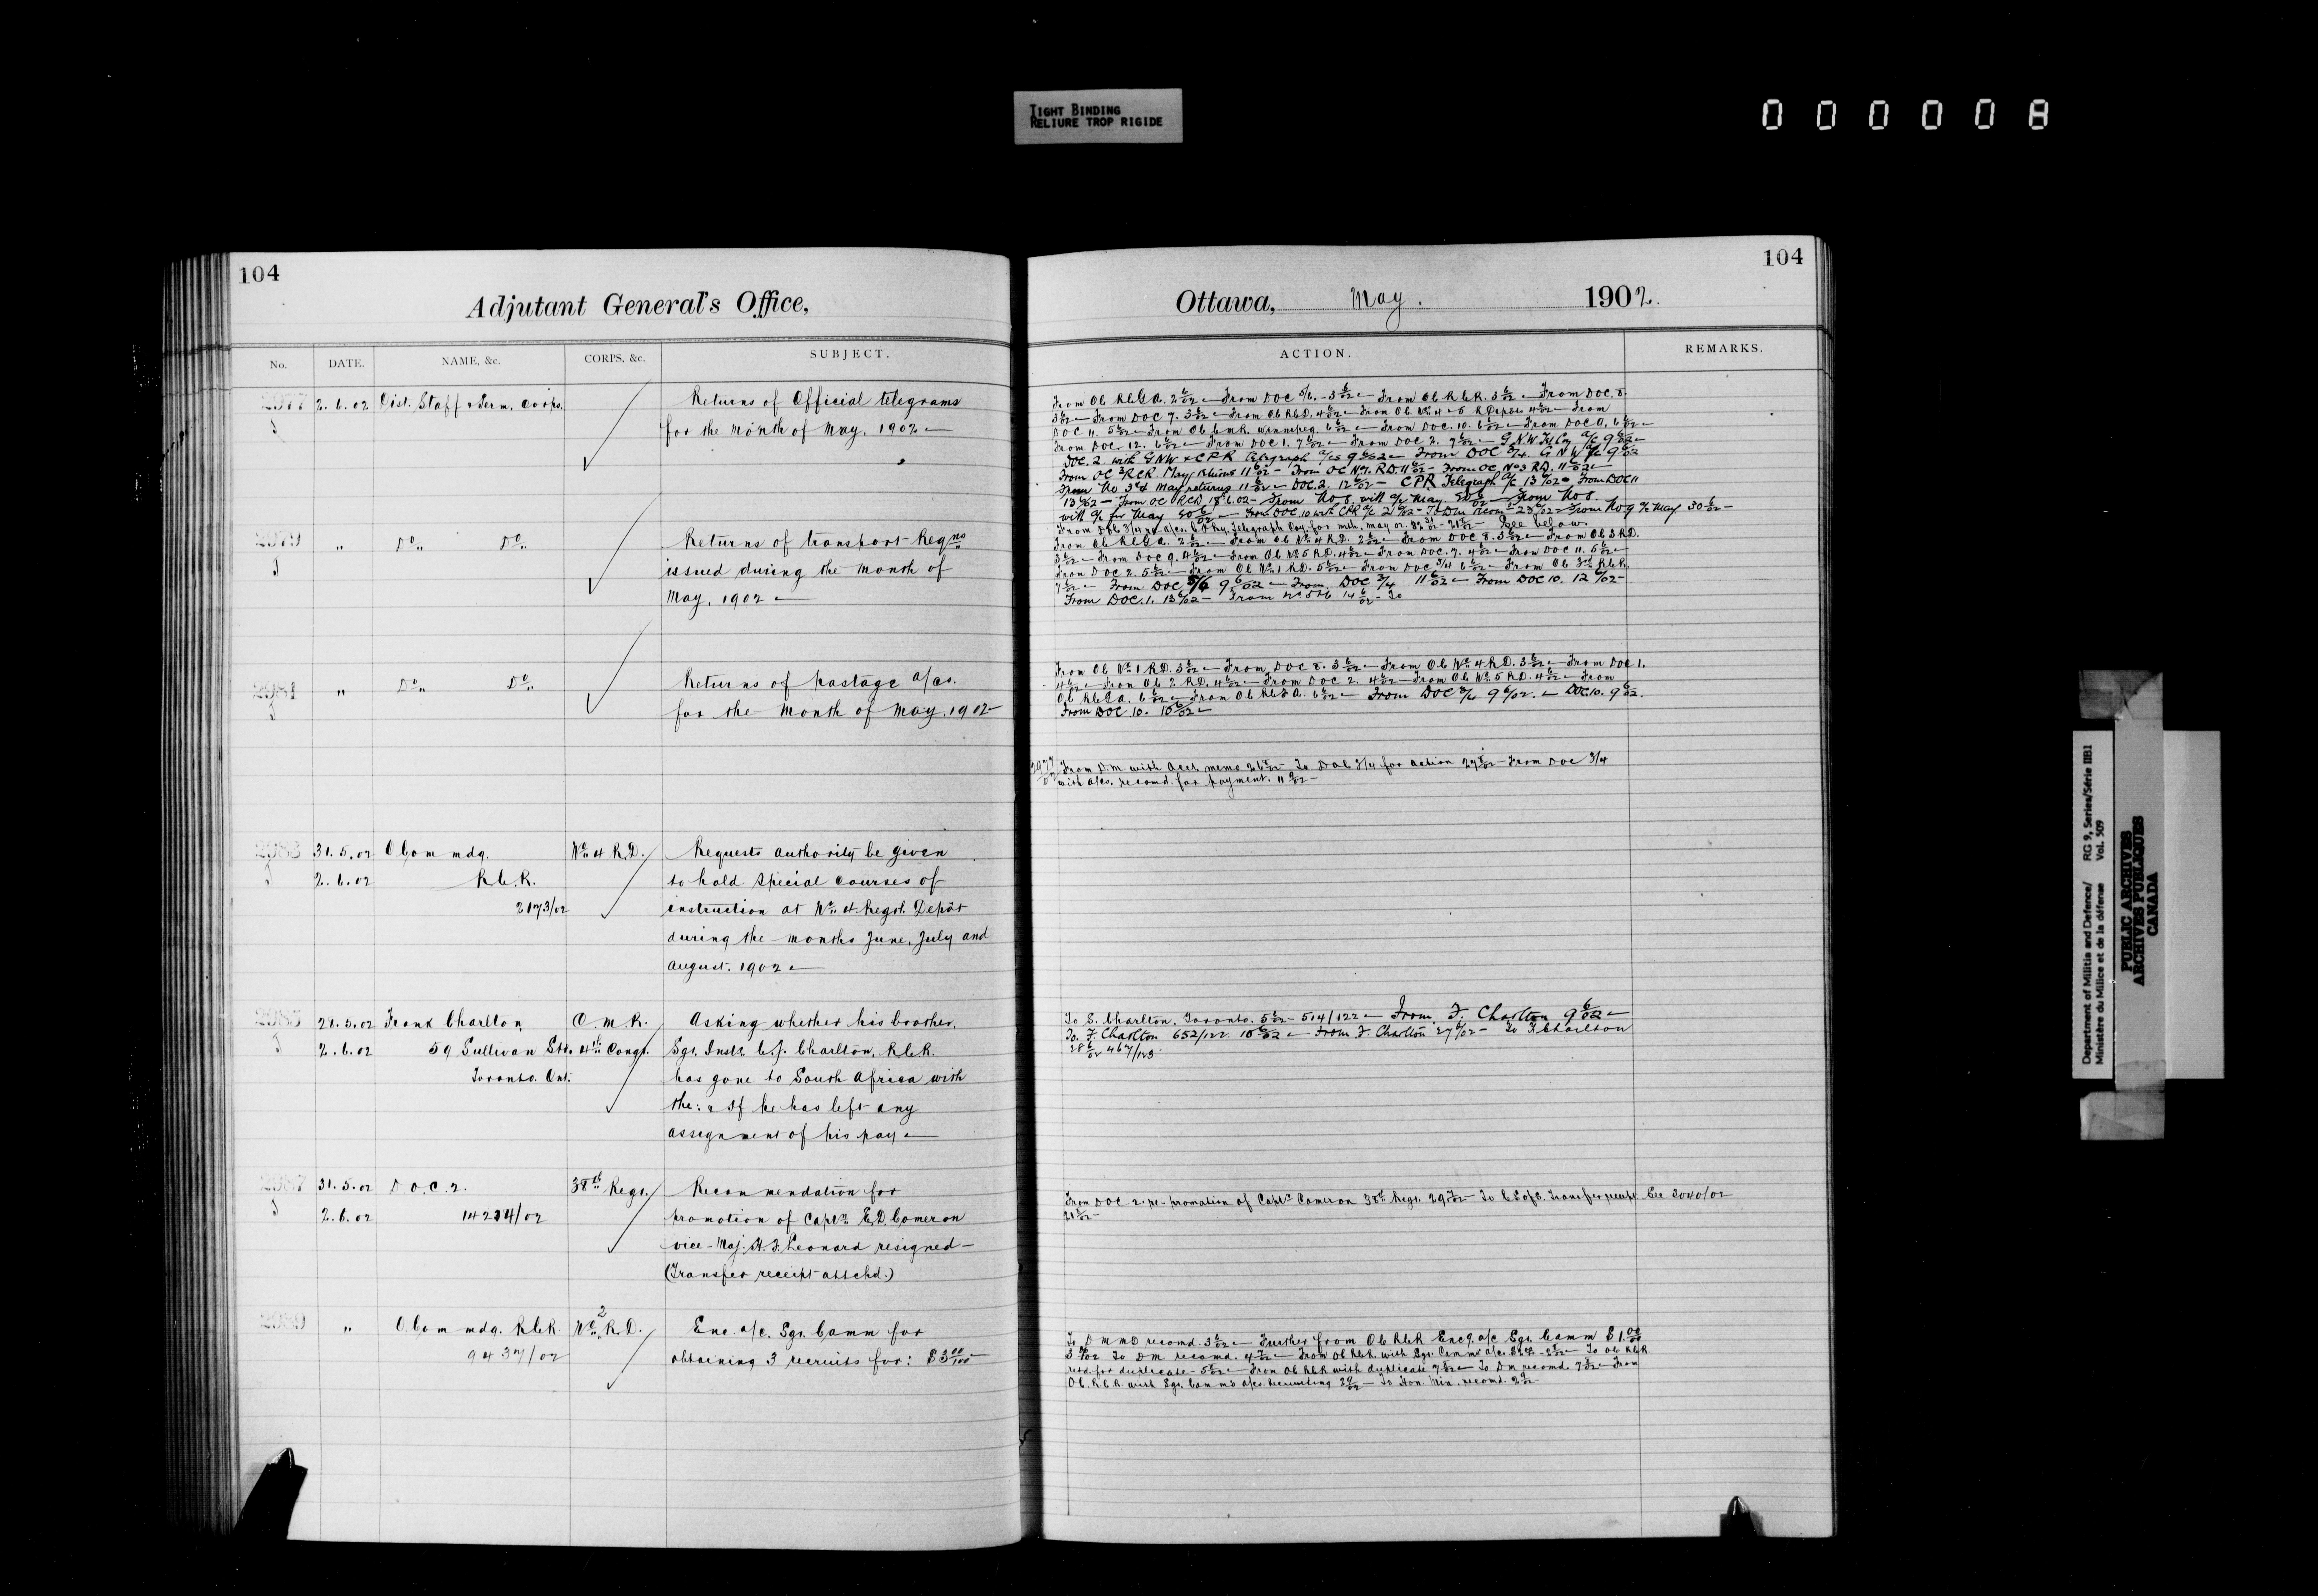 TIGHT BINDING
RELIURE TROP RIGIDE
000008
104
Adjutant General's Office,
No. DATE. NAME, &c. CORPS, &c. SUBJECT.
2977 2.6.02 Dist. Staff & Perm. Corps. Returns of Official telegrams
for the month of May. 1902
2979 " Do Do Returns of transport Reqns
issued during the month of
May. 1902
2981 " Do Do Returns of postage a/cs.
for the month of May. 1902
2983 31.5.02 OCommdg. No 4 R.D. Requests authority be given
2.6.02 R.C.R. to hold special courses of
2173/02 instruction at No 4 Regtl. Depôt
during the months June, July and
August. 1902
2985 28.5.02 Frank Charlton C.M.R. Asking whether his brother,
2.6.02 59 Sullivan Str. 4th Congt. Sgt. Instr. C.J. Charlton, R.C.R.
Toronto. Ont. has gone to South Africa with
the: & If he has left any
assignment of his pay
2987 31.5.02 D.O.C. 2. 38th Regt. Recommendation for
2.6.02 14234/02 promotion of Capt. E.D. Cameron
vice Maj. H.F. Leonard resigned
(Transfer receipt attchd.)
2989 " OCommdg. RCR No 2 R.D. Enc. a/c. Sgt. Camm for
9437/02 obtaining 3 recruits for: $3 00/100
104
Ottawa, May. 1902.
ACTION. REMARKS.
From OC RCGA. 2 6/02 From DOC 5/6. 3 6/02 From OC RCR. 3 6/02 From DOC. 8.
3 6/02 From DOC 7. 3 6/02 From OC RCD. 4 6/02 From OC No 4 R Depot 4 6/02 From
DOC 11. 5 6/02 From OC CMR. Winnipeg. 6 6/02 From DOC. 10. 6 6/02 From DOC 9. 6 6/02
From DOC. 12. 6 6/02 From DOC 1. 7 6/02 From DOC 2. 7 6/02 GNW Tel Coy a/c 9 6/02
DOC. 2 with GNW & CPR telegraph a/cs 9 6/02 From DOC 3/4. GNW a/c 9 6/02
From OC 3 RCR May returns 11 6/02 From OC No 1. RD. 11 6/02 From OC No 3 RD. 11 6/02
From No 3 & 4 May returns 11 6/02 DOC. 2. 12 6/02 CPR Telegraph a/c 13 6/02 From DOC 11
13 6/02 From OC RCD 18.6.02 From No 8. with a/c May. From No 8.
with a/c for May From DOC. 10 with CPR a/c 21 6/02 To DM recom 23 6/02 From No 9 a/c May 30 6/02
See below
From OC RCGA. 2 6/02 From OC No 4 RD. 2 6/02 From DOC 8. 3 6/02 From OC 3 RD.
3 6/02 From DOC 9. 4 6/02 From OC No 5 RD. 4 6/02 From DOC. 7. 4 6/02 From DOC 11. 5 6/02
From DOC 2. 5 6/02 From OC No 1 RD. 5 6/02 From DOC 3/4 6 6/02 From OC 3rd RCR.
7 6/02 From DOC 5/6 9 6/02 From DOC 3/4 11 6/02 From DOC 10. 12 6/02
From DOC. 1. 13 6/02 From No 5 & 6 14 6/02 To
From OC No 1 RD. 3 6/02 From DOC 8. 3 6/02 From OC No 4 RD. 3 6/02 From DOC 1.
4 6/02 From OC 2 RD. 4 6/02 From DOC 2. 4 6/02 From OC No 5 RD. 4 6/02 From
OC RCGA. 6 6/02 From OC RCGA. 6 6/02 From DOC 5/6 9 6/02. DOC 10. 9 6/02.
From DOC. 10. 10 6/02
2977/02 From D.M. with Acct. memo To DOC 3/4 for action From DOC 3/4
with a/cs. recomd. for payment.
To S. Charlton, Toronto. 5 6/02 514/122 From F. Charlton 9 6/02
To F. Charlton 652/122 10 6/02 From F. Charlton 27 6/02 To F Charlton
28 6/02 467/123
From DOC 2. re promotion of Capt. Cameron 38th Regt. To Transfer receipt See 3040/02
To DMMD recomd. 3 6/02 Further from OC RCR Encg. a/c Sgt. Camm $1.00
To DM recomd. From OC RCR. with Sgt. Camm's a/c. To OC RCR
retd. for duplicate From OC RCR with duplicate To DM recomd. From
OC. R.C.R. with Sgt. Camm's a/cs. recruiting To Hon. Min. recomd.
Department of Militia and Defence/ RG 9, Series/Série IIB1
Ministère du Milice et de la défense Vol. 509
PUBLIC ARCHIVES
ARCHIVES PUBLIQUES
CANADA